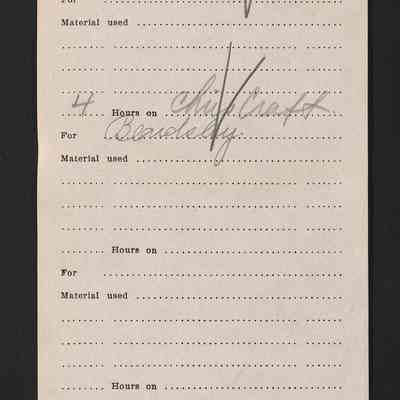 For
Material used
4 Hours on Chris Craft
For Beardsley
Material used
Hours on
For
Material used
Hours on